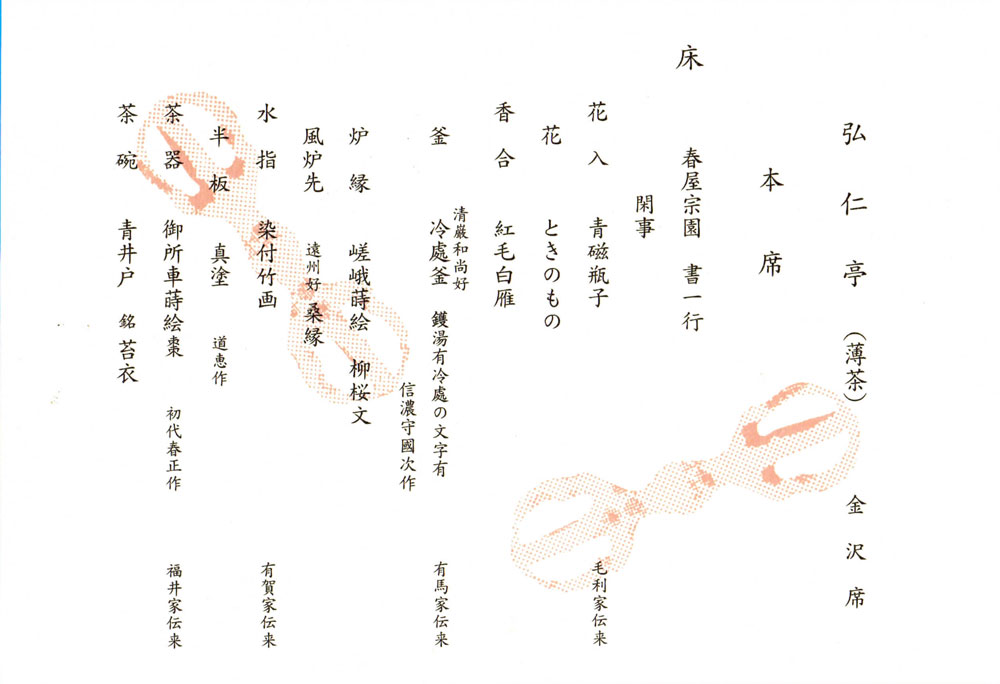 弘仁亭（薄茶）　金沢席
本席
床　春屋宗園　書一行
閑事
花入　青磁瓶子　毛利家伝来
花　ときのもの
香合　紅毛白雁
清巖和尚好
釜　冷處釜　鑊湯有冷處の文字有　有馬家伝来
信濃守國次作
炉縁　嵯峨蒔絵　柳桜文
風炉先　遠州好　桑縁
水指　染付竹画　有賀家伝来
半板　真塗　道恵作
茶器　御所車蒔絵棗　初代春正作　福井家伝来
茶碗　青井戸　銘　苔衣